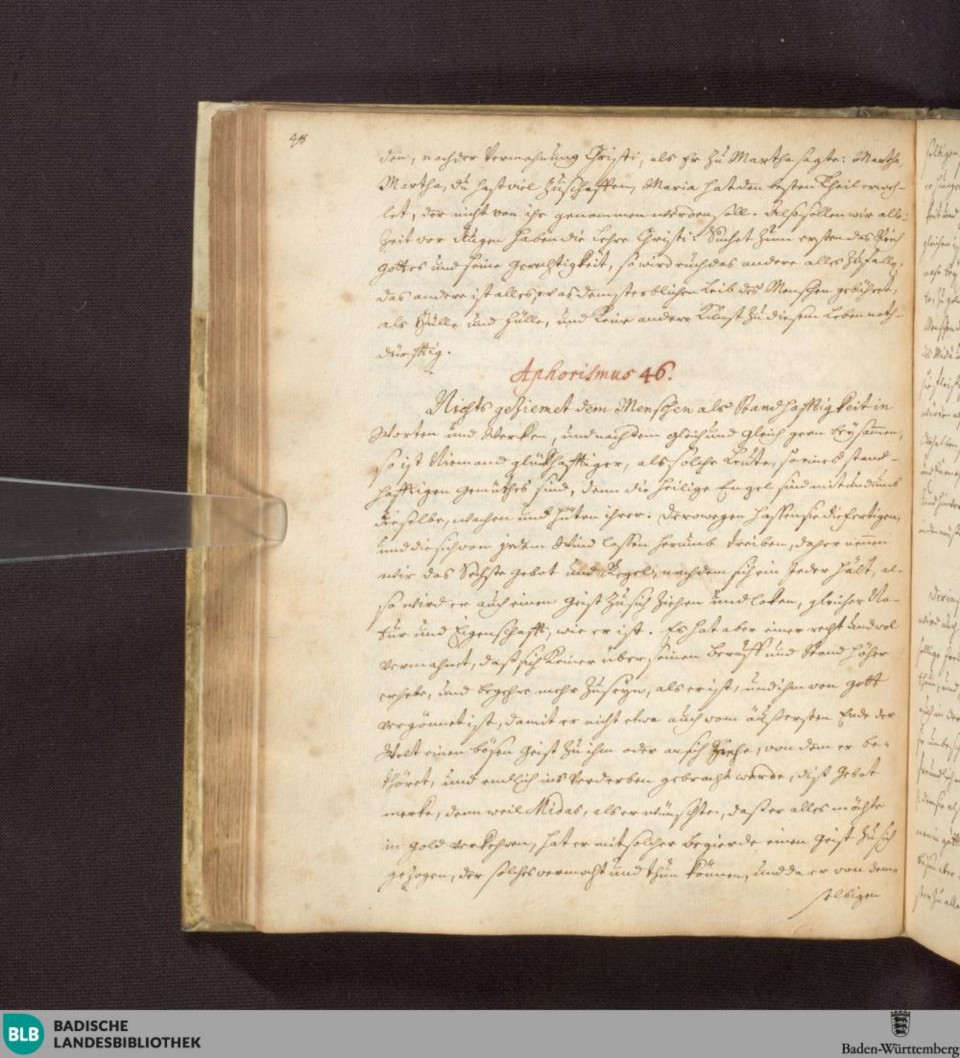 den, nach der Vermahnung Christi, als Er zu Martha sagte: Martha,
Martha, du hast viel zuschaffen, Maria hat den besten Theil erweh-
let, der nicht von ihr genommen werden soll. Also sollen wir alle-
Zeit vor Augen haben die Lehre Christi: Suchet zum ersten das Reich
Gottes und seine Gerechtigkeit, so wird euch das andere alles zufallen,
das andere ist alles, was dem sterblichen Leib des Menschen gebühret,
als Hülle und Fülle, und keine andere Kunst zu diesem Leben noth-
dürfftig.
Aphorismus 46.
Nichts geziemet dem Menschen als Standhafftigkeit in
Worten und Werken, und nachdem gleich und gleich gern beysammen,
so ist Niemand glükhafftiger, als solche Leute, so eines stand-
hafftigen Gemüthes sind, denn die heilige Engel sind mit und umb
dieselbe, wachen und hüten ihrer: derowegen hassen sie die fertigen,
und die sich von jedem Wind lassen herumb treiben, daher nennen
wir das Sechste Gebot und Regel, nachdem sich ein Jeder hält, al-
so wird er auch einen Geist zu sich ziehen und loken, gleicher Na-
tur und Eigenschafft, wie er ist. Es hat aber einer recht und wol
vermahnet, daß sich keiner über seinen Beruff und Stand höher
erhebe, und begehre mehr zu seyn, als er ist, und ihm von Gott
vergönnet ist, damit er nicht etwa auch vom äußersten Ende der
Welt einen bösen Geist zu ihm oder an sich ziehe, von dem er be-
thöret, und endlich ins Verderben gebracht werde, diß Gebot
merke, denn weil Midas, als er wünschte, daß er alles möchte
in Gold verkehren, hat er mit solcher Begierde einen Geist zu sich
gezogen, der solches vermocht und thun können, und da er von dem-
selbigen
BLB BADISCHE
LANDESBIBLIOTHEK
Baden-Württemberg